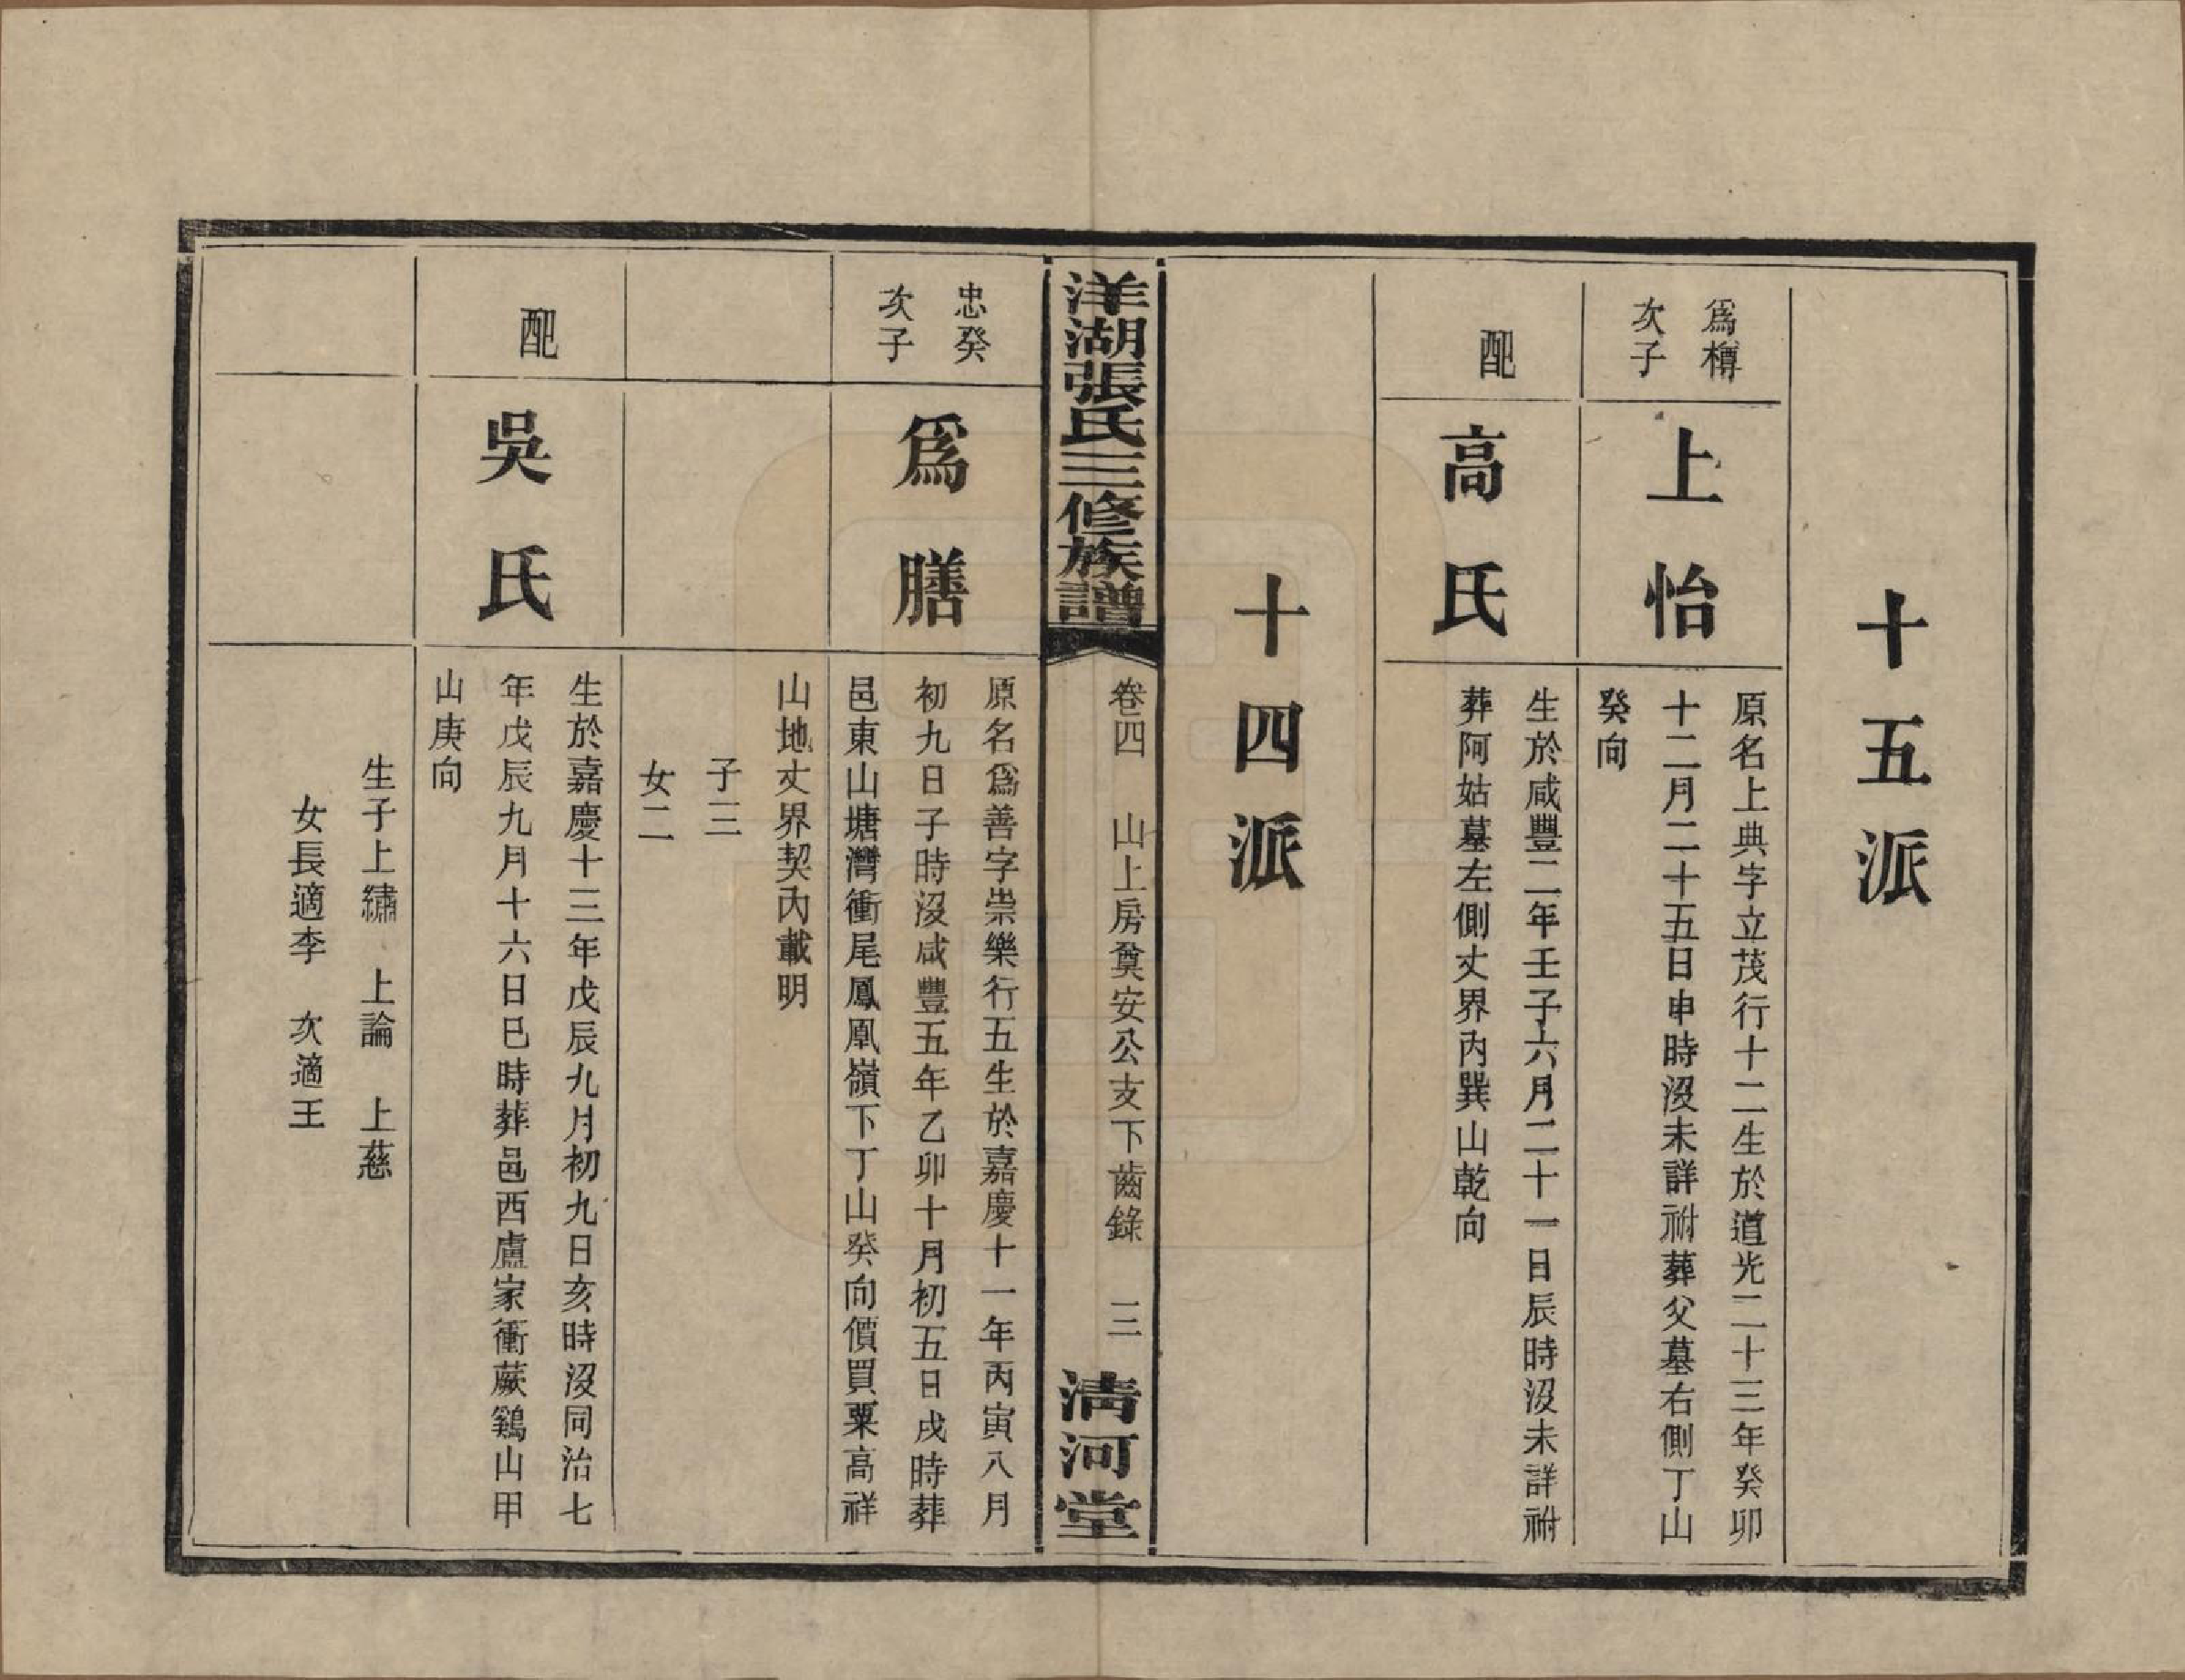 十五派
爲樽
次子
上怡
原名上典字立茂行十二生於道光二十三年癸卯
十二月二十五日申時沒未詳祔葬父墓右側丁山
癸向
配
高氏
生於咸豐二年壬子六月二十一日辰時沒未詳祔
葬阿姑墓左側丈界內巽山乾向
十四派
洋湖張氏三修族譜
卷四 山上房奠安公支下齒錄 三
淸河堂
忠癸
次子
爲膳
原名爲善字崇樂行五生於嘉慶十一年丙寅八月
初九日子時沒咸豐五年乙卯十月初五日戌時葬
邑東山塘灣衝尾鳳凰嶺下丁山癸向價買粟高祥
山地丈界契內載明
子三
女二
配
吳氏
生於嘉慶十三年戊辰九月初九日亥時沒同治七
年戊辰九月十六日巳時葬邑西盧家衝蕨鷄山甲
山庚向
生子上繡 上論 上慈
女長適李 次適王